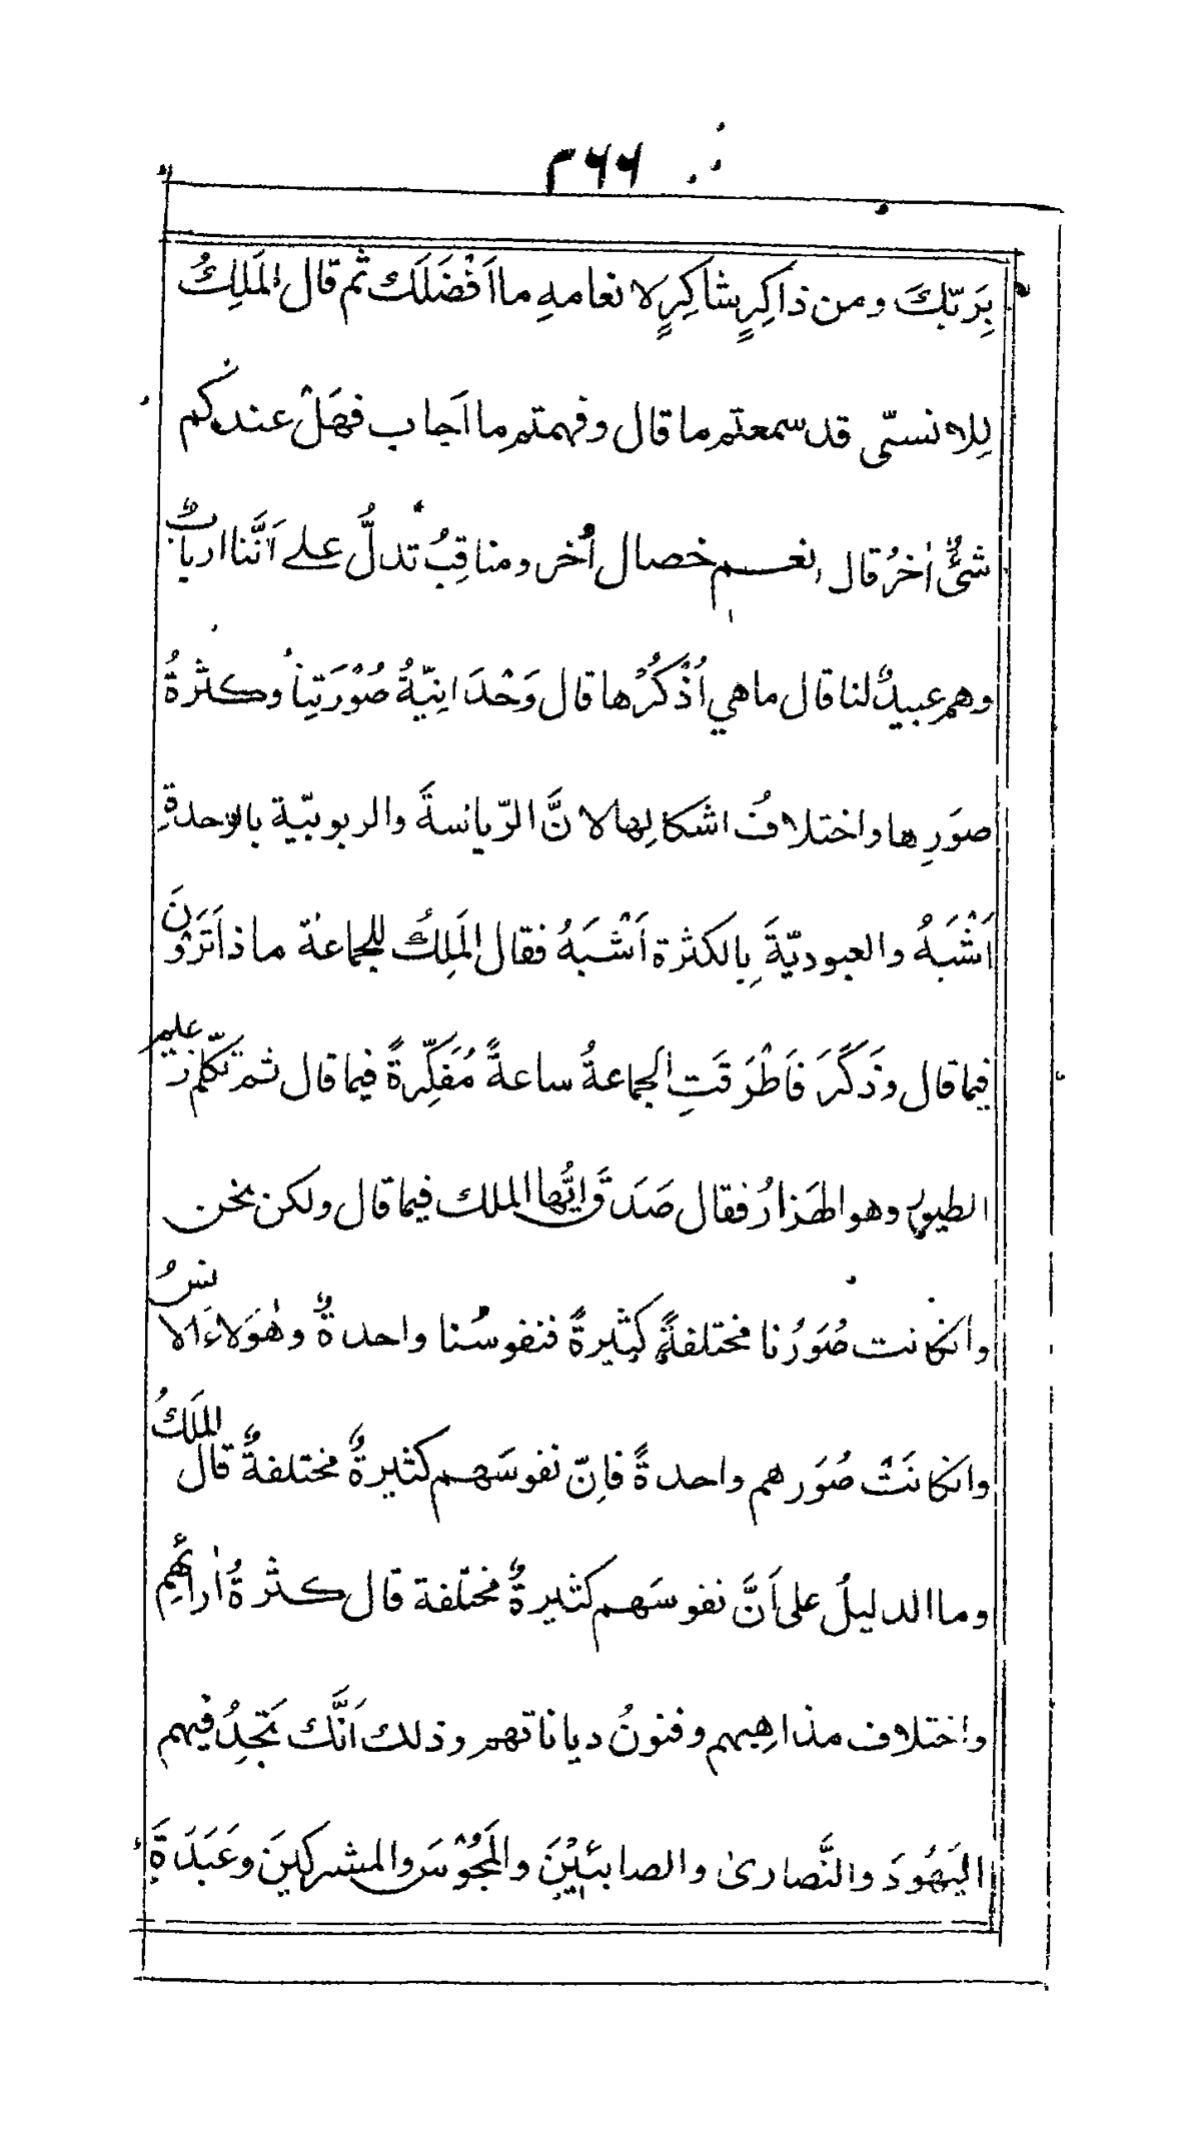 ٢٦٦
بِرَبّكَ ومن ذاكِرٍ شاكِرٍ لانعامهِ ما اَفْضَلَك ثم قال المَلِكُ
لِلانسىّ قد سمعتم ما قال وفهمتم ما اَجاب فهَلْ عندكم
شئٌ اٰخرُ قال نعم خصال اُخر ومناقِبُ تدلُّ على اَنَّنا اربابٌ
وهم عبيدٌ لنا قال ما هي اُذْكُرْها قال وَحْدَانِيّةُ صُوْرَتِنا وكثرةُ
صوَرِها واختلافُ اشكالِها لانَّ الرّياسةَ والربوبيّة بالوحدةِ
اَشْبَهُ والعبوديّةَ بِالكثرة اَشْبَهُ فقال المَلِكُ للجماعة ماذا تَرَوْنَ
فيما قال وذَكَرَ فَاَطْرَقَتِ الجماعةُ ساعةً مُفَكِّرةً فيما قال ثم تكلّم زعيم
الطيور وهو الهَزارُ فقال صَدَقَ ايُّها الملك فيما قال ولكن نحن
وانكانت صُوَرُنا مختلفةً كثيرةً فنفوسُنا واحدةٌ وهٰؤلاءِ الانسُ
وانكانَتْ صُوَرهم واحدةً فاِنّ نفوسَهم كثيرةٌ مختلفةٌ قال المَلَكُ
وما الدليلُ على اَنَّ نفوسَهم كثيرةٌ مختلفة قال كثرةُ اٰرائهِم
واختلاف مذاهِبهم وفنونُ دياناتهم وذلك اَنَّك تَجِدُ فيهم
اليَهُودَ والنَّصارىٰ والصابئِيْنَ والمَجُوْسَ والمشركينَ وعَبَدَةَ